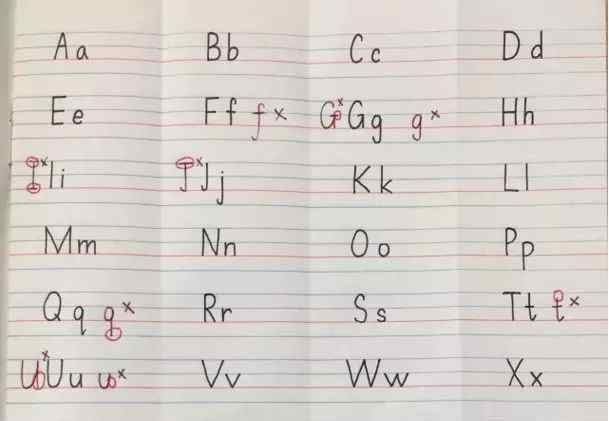 Aa Bb Cc Dd
Ee Ff f× G×Gg g× Hh
I×Ii J×Jj Kk Ll
Mm Nn Oo Pp
Qq q× Rr Ss Tt t×
U×Uu u× Vv Ww Xx